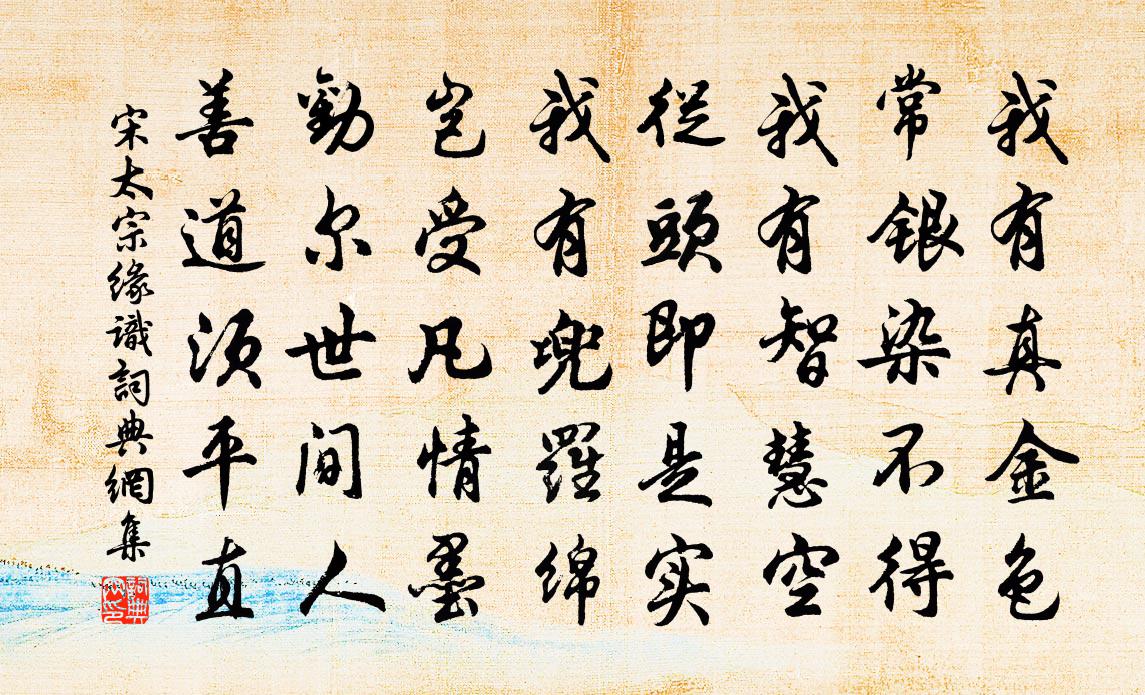 我有真金色
常銀染不得
我有智慧空
從頭即是实
我有兜羅绵
岂受凡情墨
勸尔世间人
善道须平直
宋太宗緣識詞典網集